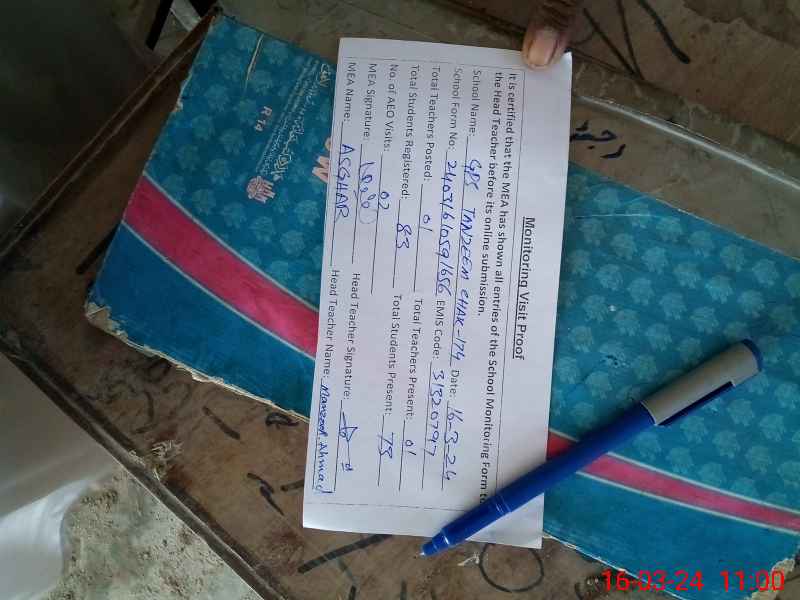 Monitoring Visit Proof
It is certified that the MEA has shown all entries of the School Monitoring Form to
the Head Teacher before its online submission.
School Name: GPS TANZEEM CHAK-174 Date: 16-3-24
School Form No: 24031610591656 EMIS Code: 31320797
Total Teachers Posted: 01 Total Teachers Present: 01
Total Students Registered: 83 Total Students Present: 78
No. of AEO Visits: 02
MEA Signature: Head Teacher Signature:
MEA Name: ASGHAR Head Teacher Name: Manzoor Ahmad
R 14
16-03-24 11:00